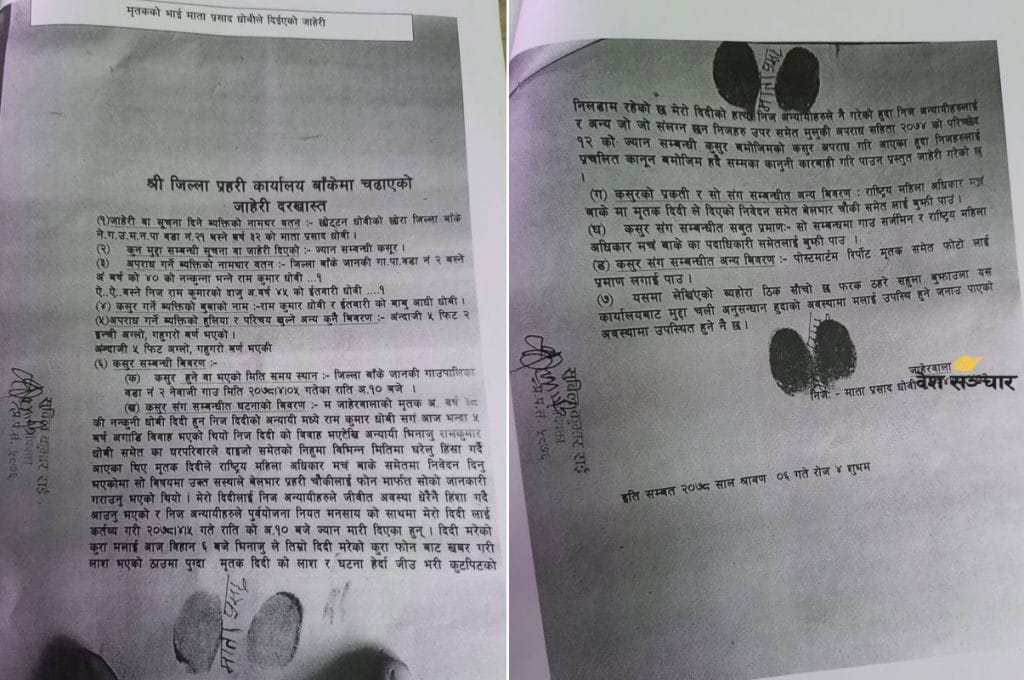 मृतकको भाई माता प्रसाद धोबीले दिईएको जाहेरी
श्री जिल्ला प्रहरी कार्यालय बाँकेमा चढाएको
जाहेरी दरखास्त
(१)जाहेरी वा सूचना दिने ब्यक्तिको नामथर वतन :- छोट्टन धोबीको छोरा जिल्ला बाँके
ने.ग.उ.म.न.पा वडा नं.२१ बस्ने बर्ष ३२ को माता प्रसाद धोबी ।
(२) कुन मुद्दा सम्बन्धी सूचना वा जाहेरी दिएको :- ज्यान सम्बन्धी कसुर ।
(३) अपराध गर्ने ब्यक्तिको नामथर वतन :- जिल्ला बाँके जानकी गा.पा.वडा नं २ बस्ने
अं बर्ष को ४० को नन्कुन्ना भन्ने राम कुमार धोबी ...१
ऐ..ऐ..बस्ने निज राम कुमारको दाजु अ.वर्ष ४५ को ईतवारी धोबी ....१
(४) कसुर गर्ने ब्यक्तिको बुबाको नाम :-राम कुमार धोबी र ईतवारी को बाबु आधी धोबी ।
(५)अपराध गर्ने ब्यक्तिको हुलिया र परिचय खुल्ने अन्य कुनै बिबरण :- अंन्दाजी ५ फिट २
ईन्ची अग्लो, गहुगरो बर्ण भएको ।
अंन्दाजी ५ फिट अग्लो, गहुगरो बर्ण भएकी
(६) कसुर सम्बन्धी बिबरण :-
(क) कसुर हुने वा भएको मिति समय स्थान :- जिल्ला बाँके जानकी गाउपालिका
वडा नं २ नेवाजी गाउ मिति २०७८।४।०५ गतेका राति अ.१० बजे ।
(ख) कसुर संग सम्बन्धीत घटनाको बिबरण :- म जाहेरवालाको मृतक अ. वर्ष ३८
की नन्कुनी धोबी दिदी हुन निज दिदीको अन्यायी मध्ये राम कुमार धोबी सगं आज भन्दा ५
बर्ष अगाडि बिवाह भएको थियो निज दिदी को विवाह भएदेखि अन्यायी भिनाजु रामकुमार
धोबी समेत का घरपरिवारले दाइजो समेतको निहुमा विभिन्न मितिमा घरेलु हिंसा गर्दै
आएका थिए मृतक दिदीले राष्ट्रिय महिला अधिकार मचं बाके समेतमा निवेदन दिनु
भएकोमा सो बिषयमा उक्त सस्थाले बेलभार प्रहरी चौकीलाई फोन मार्फत सोको जानकारी
गराउनु भएको थियो । मेरो दिदीलाई निज अन्यायीहरुले जीवीत अवस्था धेरैनै हिंशा गदै
आउनु भएको र निज अन्यायीहरुले पुर्वयोजना नियत मनसाय को साथमा मेरो दिदी लाई
कर्तव्य गरी २०७८।४।५ गते राति को अ.१० बजे ज्यान मारी दिएका हुन् । दिदी मरेको
कुरा मलाई आज बिहान ६ बजे भिनाजु ले तिम्रो दिदी मरेको कुरा फोन बाट खबर गरी
लाश भएको ठाउमा पुग्दा मृतक दिदी को लाश र घटना हेर्दा जीउ भरी कुटपिटको
माता प्रसाद
माता प्रसाद
निलडाम रहेको छ मेरो दिदीको हत्या निज अन्यायीहरुले नै गरेको हुदा निज अन्यायीहरुलाई
र अन्य जो जो संलग्न छन निजहरु उपर समेत मुलुकी अपराध सहिता २०७४ को परिच्छेद
१२ को ज्यान सम्बन्धी कुसुर बमोजिमको कसुर अपराध गरि आएका हुदा निजहरुलाई
प्रचलित कानून बमोजिम हदै सम्मका कानुनी कारबाही गरि पाउन प्रस्तुत जाहेरी गरेको छु
।
(ग) कसुरको प्रकती र सो संग सम्बन्धीत अन्य बिबरण : राष्ट्रिय महिला अधिकार मचं
बाके मा मृतक दिदी ले दिएको निवेदन समेत बेलभार चौकी समेत लाई बुझी पाउं ।
(घ) कसुर संग सम्बन्धीत सबुत प्रमाण:- सो सम्बन्धमा गाउ सर्जमिन र राष्ट्रिय महिला
अधिकार मचं बाके का पदाधिकारी समेतलाई बुझी पाउं ।
(ङ) कसुर संग सम्बन्धीत अन्य बिबरण :- पोस्टमार्टम रिर्पोट मृतक समेत फोटो लाई
प्रमाण लगाई पाउं ।
(७) यसमा लेखिएको ब्यहोरा ठिक साँचो छ फरक ठहरे सहुला बुझाउला यस
कार्यालयबाट मुद्दा चली अनुसन्धान हुदाको अबस्थामा मलाई उपस्थि हुने जनाउ पाएको
अवस्थामा उपस्थित हुने नै छ।
जाहेरवाला
निजः - माता प्रसाद धोबी
देश सञ्चार
इति सम्बत २०७८ साल श्रावण ०६ गते रोज ४ शुभम